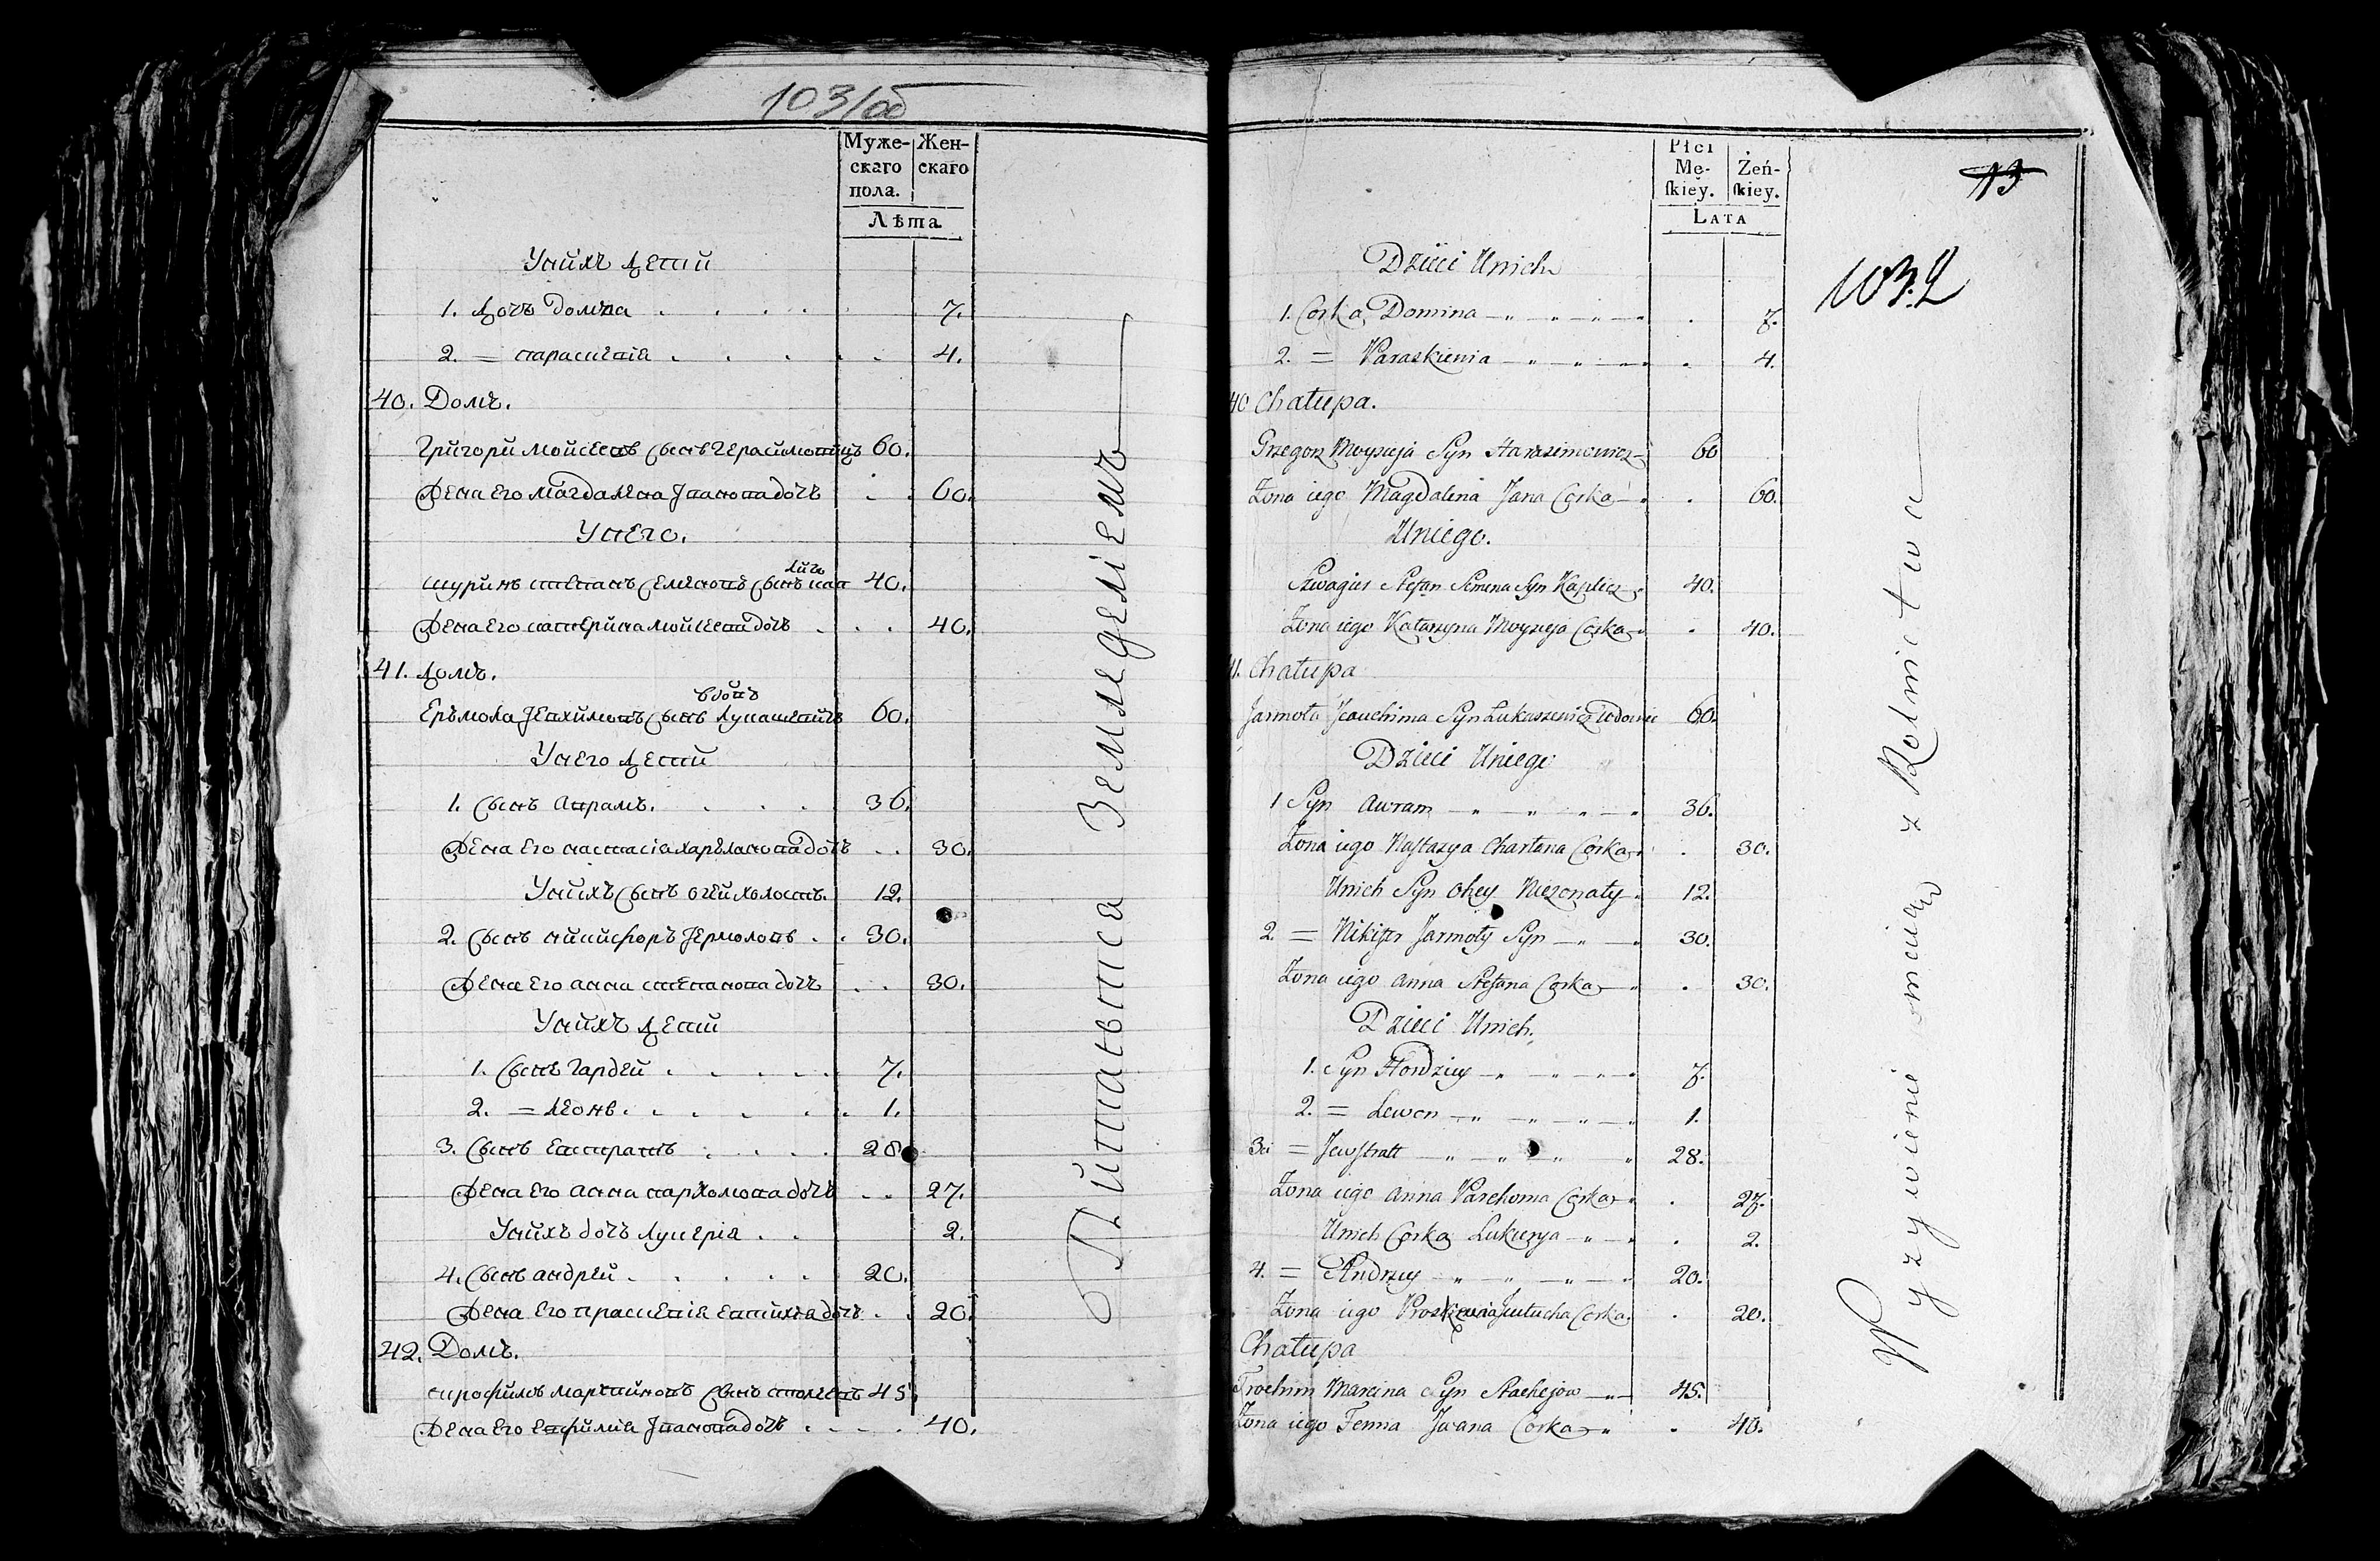 103/об
Муже-
скаго
пола.
Жен-
скаго
Лѣта
Унихъ детий
1. дочъ Домъна . . . . 7.
2. = параскевія . . . . 4.
40. Домъ.
Григори Мойсеевъ сынъ Герасимовичъ 60.
Жена его Магдалена Іванова дочъ . . 60.
Унего.
личъ
шуринъ степанъ Семеновъ сынъ кап 40.
Жена его катерина мойсеева дочъ . . . 40.
41. домъ.
вдовъ
Еръмола Іевхимовъ сынъ лукашевичъ 60.
Унего детий
1. сынъ Аврамъ. . . . 36.
Жена его настасія харъланова дочъ . . 30.
Унихъ сынъ огей холостъ. 12.
2. сынъ никифоръ Іермоловъ . . 30.
Жена его анна степанова дочъ . . 30.
Унихъ детий
1. сынъ гардей . . . . . 7.
2. = леонъ . . . . . . 1.
3. сынъ евстратъ . . . . 28
Жена его анна пархомова дочъ . . 27.
Унихъ дочъ лукерія . . 2.
4. сынъ андрей . . . . . 20.
Жена его праскевія евтихѣя дочъ . . 20.
42. Домъ.
Мартиновъ сынъ 45
Жена его евфимия Іванова дочъ . . . . 40.
Питаются Земледелiемъ
Płci
Mę-
skiey.
Żeń-
skiey.
LATA
13
103.
Dzieci Unich
1. Corka Domina — „ — „ — „ — . 7.
2. = Paraskienia — „ — „ — „ . 4.
40 Chałupa.
Grzegorz Moyzieja Syn Harasimowicz 60
Zona iego Magdalena Jana Corka — „ . 60.
Uniego.
Szwagier Stefan Semena Syn Kaplicz „ 40.
Zona iego Katarzyna Moyzieja Corka „ . 40.
41. Chałupa
Jarmoła Jeauchima Syn Lukaszewicz Wdowiec 60.
Dzieci Uniego
1 Syn Awram — „ — „ — „ — „ 36.
Zona iego Nastazya Charłana Corka „ . 30.
Unich Syn Ohey Niezonaty „ 12.
2. = Nikifor Jarmoły Syn — „ — „ 30.
Zona iego Anna Stefana Corka „ . 30.
Dzieci Unich.
1. Syn Hordziey — „ — „ — „ — „ 7.
2. = Lewon — „ — „ — „ — „ 1.
3. = Jewstratt — „ — „ — „ — „ 28.
Zona iego Anna Parchoma Corka „ . 27.
Unich Corka Lukierya — „ — „ . 2.
4. = Andrzey — „ — „ — „ — „ 20.
Zona iego Proskiewia Jeutucha Corka . 20.
Chałupa
Trochim Marcina Syn Stachejow — „ — 45.
Zona iego Fenna Jwana Corka „ . 40.
Wyzywienie z Rolnictwa